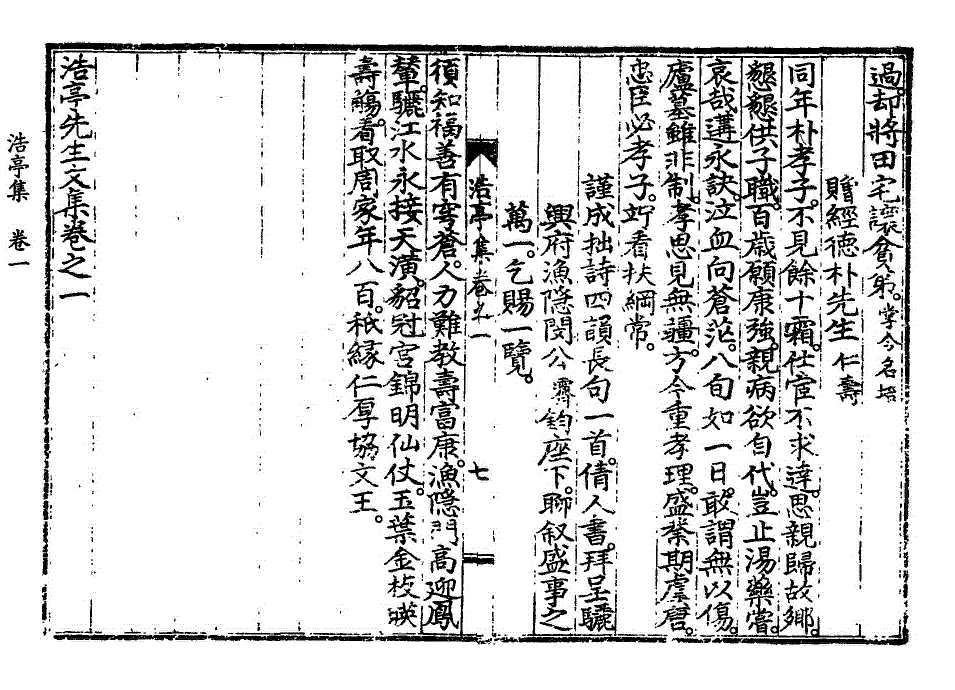 過却將田宅讓貧弟。掌令名培
贈經德朴先生仁壽
同年朴孝子。不見餘十霜。仕宦不求達。思親歸故鄉。
懇懇供子職。百歲願康強。親病欲自代。豈止湯藥嘗。
哀哉遘永訣。泣血向蒼茫。八旬如一日。敢謂無以傷。
廬墓雖非制。孝思見無疆。方今重孝理。盛業期虞唐。
忠臣必孝子。竚看扶綱常。
謹成拙詩四韻長句一首。倩人書。拜呈驪
興府漁隱閔公霽鈞座下。聊叙盛事之
萬一。乞賜一覽。
浩亭集卷之一
七
須知福善有穹蒼。人力難教壽富康。漁隱門高迎鳳
輦。驪江水永接天潢。貂冠宮錦明仙仗。玉葉金枝暎
壽觴。看取周家年八百。秖緣仁厚協文王。
浩亭先生文集卷之一
浩亭集 卷一